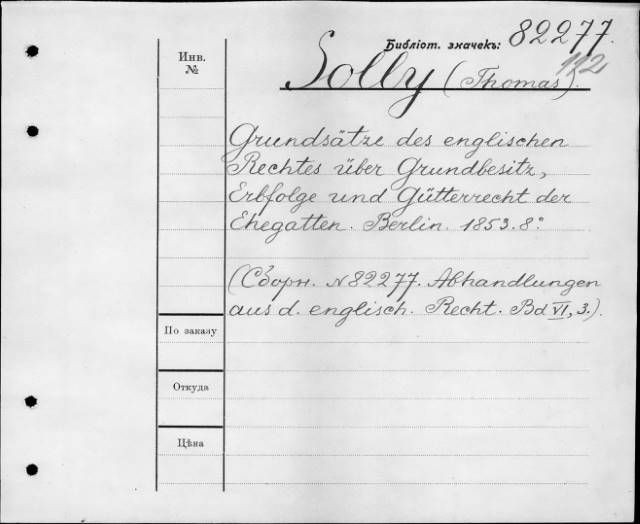 Библіот. значекъ: 82277.
112
Инв.
№
Solly (Thomas).
Grundsätze des englischen
Rechtes über Grundbesitz,
Erbfolge und Gütterrecht der
Ehegatten. Berlin. 1853. 8°
(Сборн. №82277. Abhandlungen
aus d. englisch. Recht. Bd VI, 3.).
По заказу
Откуда
Цѣна